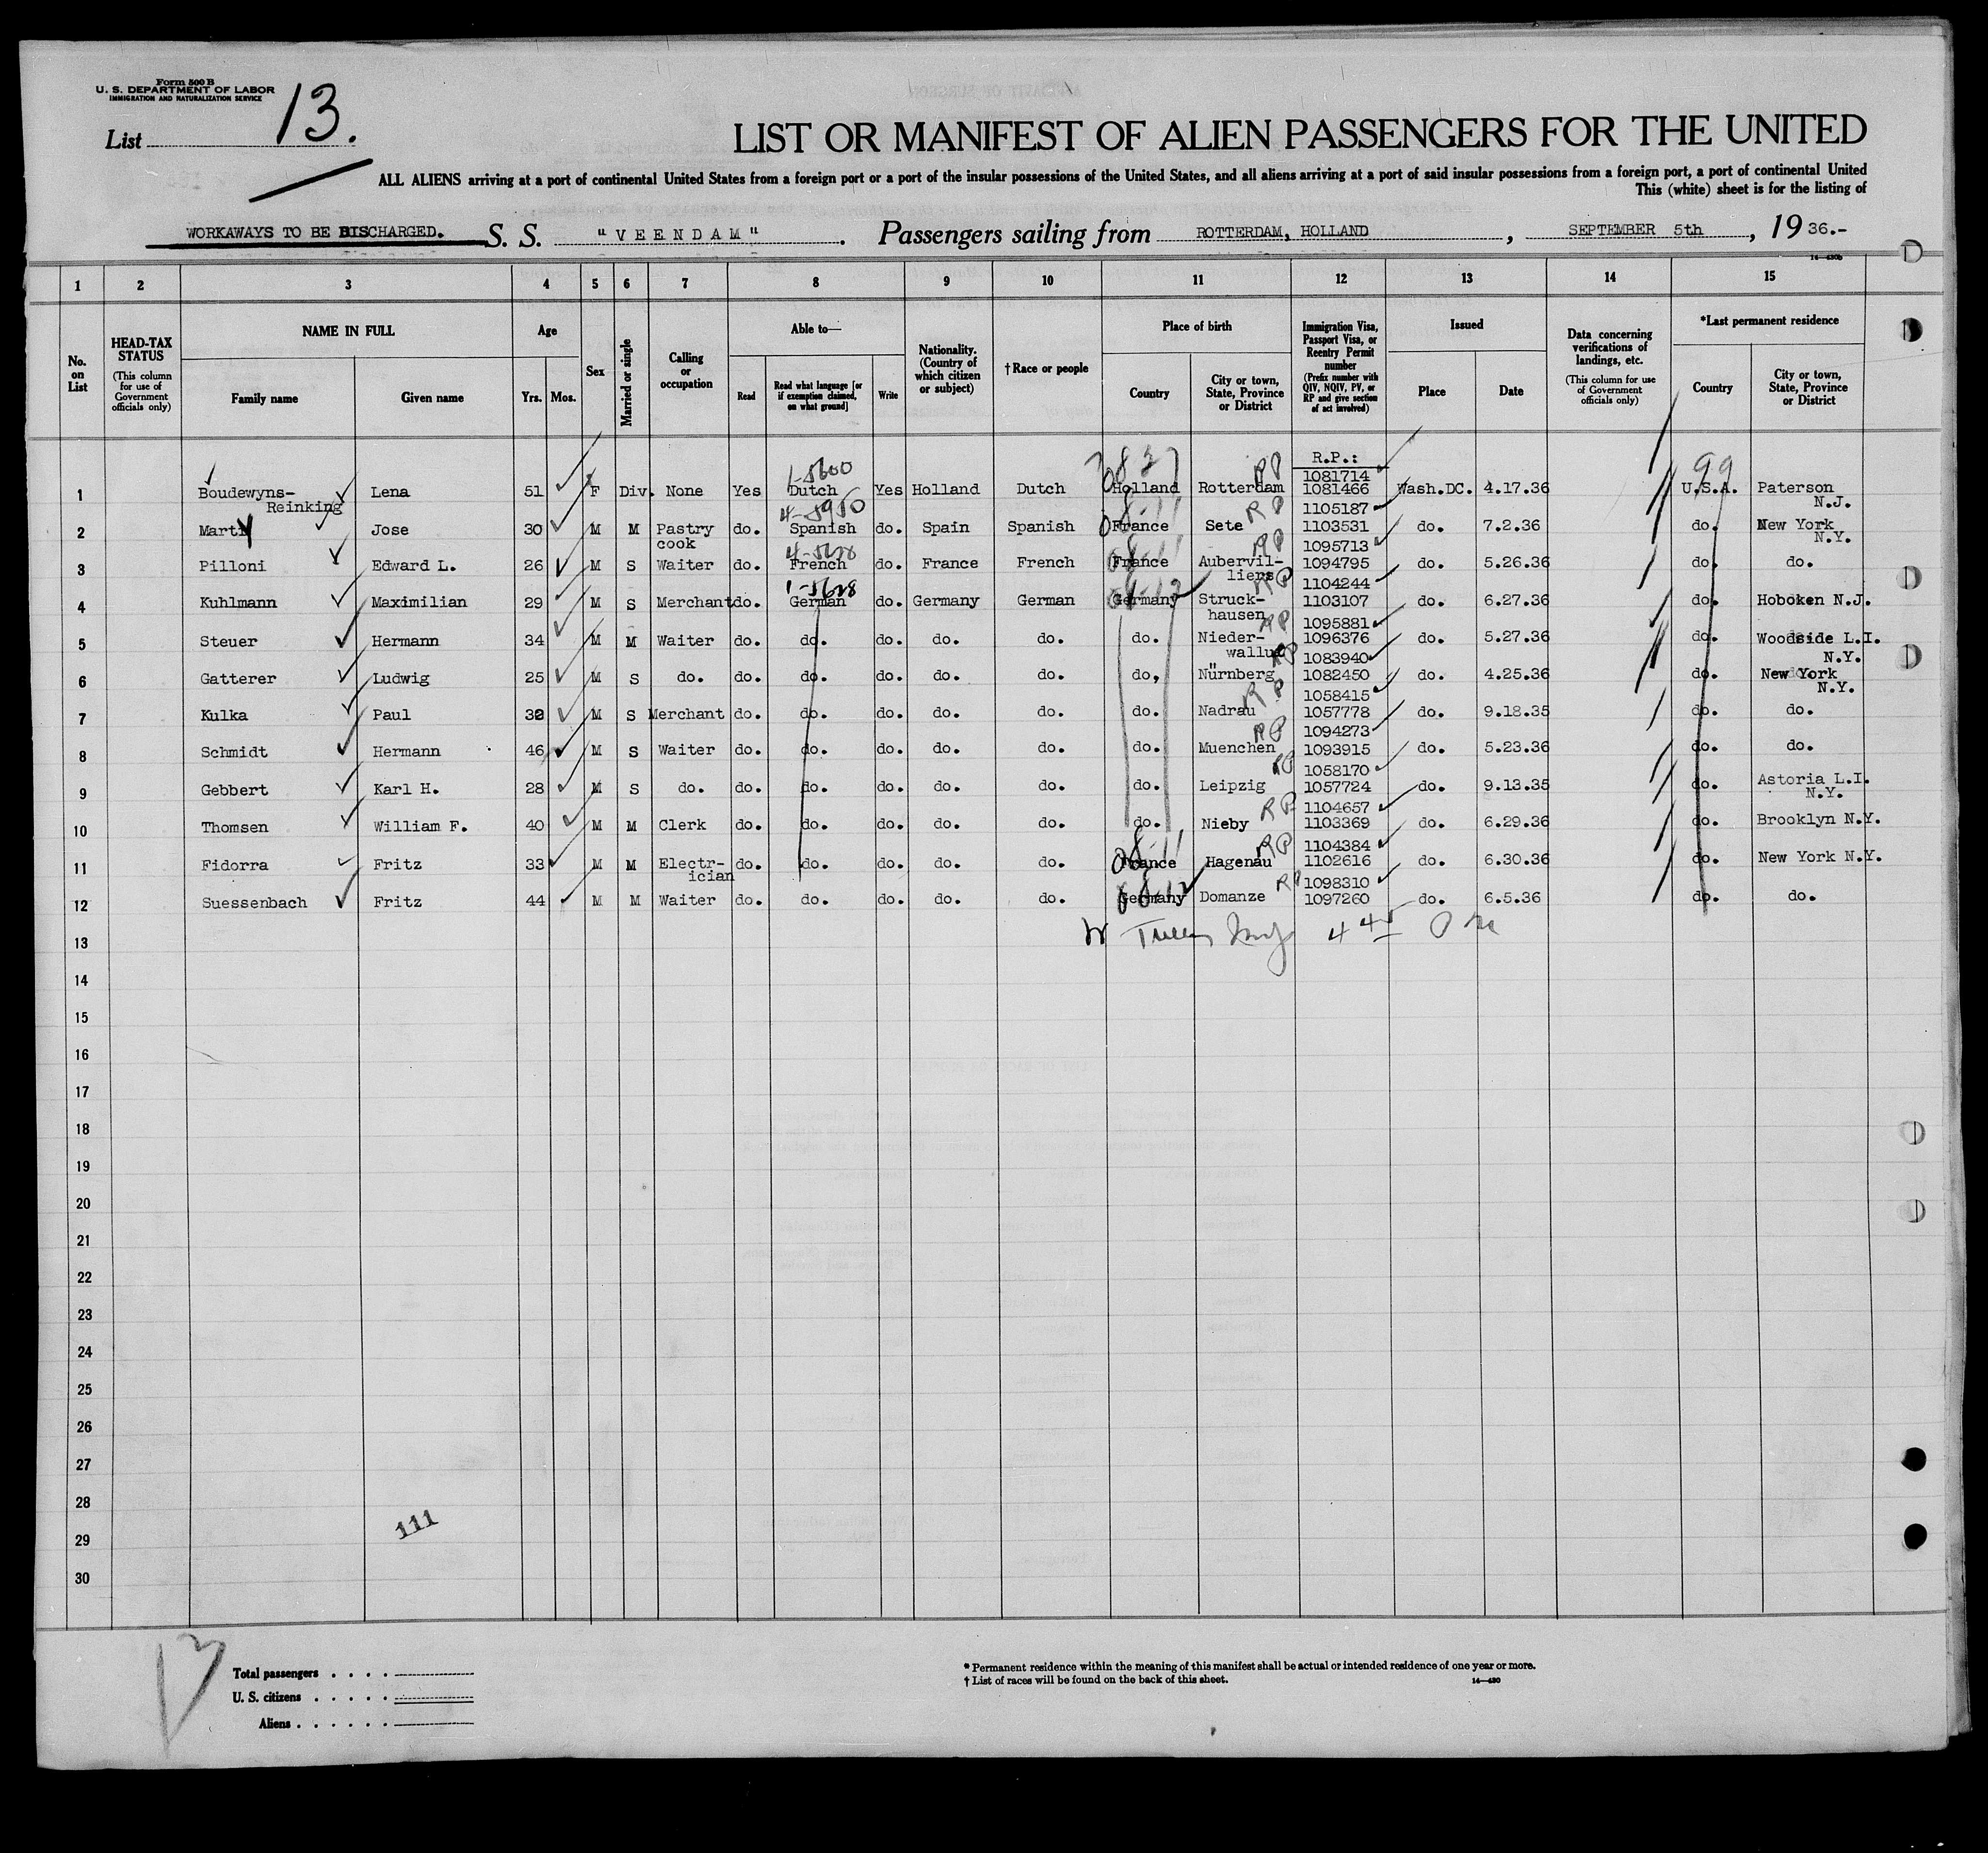 Form 500 B
U. S. DEPARTMENT OF LABOR
IMMIGRATION AND NATURALIZATION SERVICE
List 13.
LIST OR MANIFEST OF ALIEN PASSENGERS FOR THE UNITED
ALL ALIENS arriving at a port of continental United States from a foreign port or a port of the insular possessions of the United States, and all aliens arriving at a port of said insular possessions from a foreign port, a port of continental United
This (white) sheet is for the listing of
WORKAWAYS TO BE DISCHARGED. S. S. "VEENDAM". Passengers sailing from ROTTERDAM, HOLLAND, SEPTEMBER 5th, 1936.-
14-430b
1 2 3 4 5 6 7 8 9 10 11 12 13 14 15
No. on List
HEAD-TAX STATUS
(This column for use of Government officials only)
NAME IN FULL
Family name Given name
Age
Yrs. Mos.
Sex
Married or single
Calling or occupation
Able to—
Read Read what language [or if exemption claimed, on what ground] Write
Nationality. (Country of which citizen or subject)
†Race or people
Place of birth
Country City or town, State, Province or District
Immigration Visa, Passport Visa, or Reentry Permit number
(Prefix number with QIV, NQIV, PV, or RP and give section of act involved)
Issued
Place Date
Data concerning verifications of landings, etc.
(This column for use of Government officials only)
*Last permanent residence
Country City or town, State, Province or District
R.P.:
1-5600 99
1081714
1 Boudewyns- Lena 51 F Div. None Yes Dutch Yes Holland Dutch Holland Rotterdam RP 1081466 Wash.DC. 4.17.36 U.S.A. Paterson
Reinking N.J.
1105187
2 Marty Jose 30 M M Pastry do. Spanish do. Spain Spanish France Sete RP 1103531 do. 7.2.36 do. New York
cook N.Y.
1095713
3 Pilloni Edward L. 26 M S Waiter do. French do. France French France Aubervil- RP 1094795 do. 5.26.36 do. do.
liers
1-5628 1104244
4 Kuhlmann Maximilian 29 M S Merchant do. German do. Germany German Germany Struck- RP 1103107 do. 6.27.36 do. Hoboken N.J.
hausen
1095881
5 Steuer Hermann 34 M M Waiter do. do. do. do. do. do. Nieder- RP 1096376 do. 5.27.36 do. Woodside L.I.
walluf N.Y.
1083940
6 Gatterer Ludwig 25 M S do. do. do. do. do. do. do, Nürnberg RP 1082450 do. 4.25.36 do. New York
N.Y.
1058415
7 Kulka Paul 32 M S Merchant do. do. do. do. do. do. Nadrau RP 1057778 do. 9.18.35 do. do.
1094273
8 Schmidt Hermann 46 M S Waiter do. do. do. do. do. do. Muenchen RP 1093915 do. 5.23.36 do. do.
1058170
9 Gebbert Karl H. 28 M S do. do. do. do. do. do. do. Leipzig RP 1057724 do. 9.13.35 do. Astoria L.I.
N.Y.
1104657
10 Thomsen William F. 40 M M Clerk do. do. do. do. do. do. Nieby RP 1103369 do. 6.29.36 do. Brooklyn N.Y.
1104384
11 Fidorra Fritz 33 M M Electr- do. do. do. do. do. France Hagenau RP 1102616 do. 6.30.36 do. New York N.Y.
ician
1098310
12 Suessenbach Fritz 44 M M Waiter do. do. do. do. do. Germany Domanze RP 1097260 do. 6.5.36 do. do.
13
14
15
16
17
18
19
20
21
22
23
24
25
26
27
28
29
30
111
Total passengers
U. S. citizens
Aliens
* Permanent residence within the meaning of this manifest shall be actual or intended residence of one year or more.
† List of races will be found on the back of this sheet.
14-430